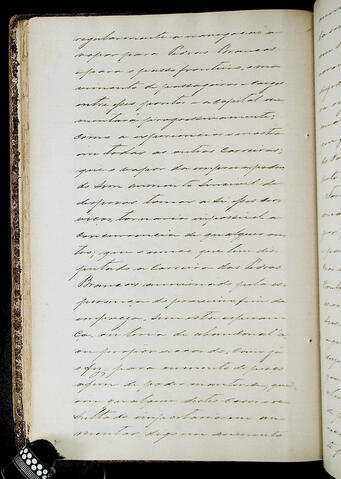 regularmente a navegação a
vapor para Pedras Brancas
e para o passo fronteiro, o mo
vimento de passageiros e cargas
entre esses pontos e a capital au
mentará progressivamente,
como a experiencia o mostra
em todas as outras carreiras;
que o vapor da empreza poden
do sem augmento sensivel de
despezas tomar a si esse ser
viço, tornaria impossivel a
concurrencia de qualquer ou
tro; que o unico que tem dis
putado a carreira das Pedras
Brancas animado pela es
perança do
empreza, sem esta esperan
ça, ou teria de abandonal-a
ou propôr accordo, como já
o fez, para augmento de preços
afim de poder manter-se, que
em qualquer destes casos o re
sultado importaria em au
mentar, digo um augmento